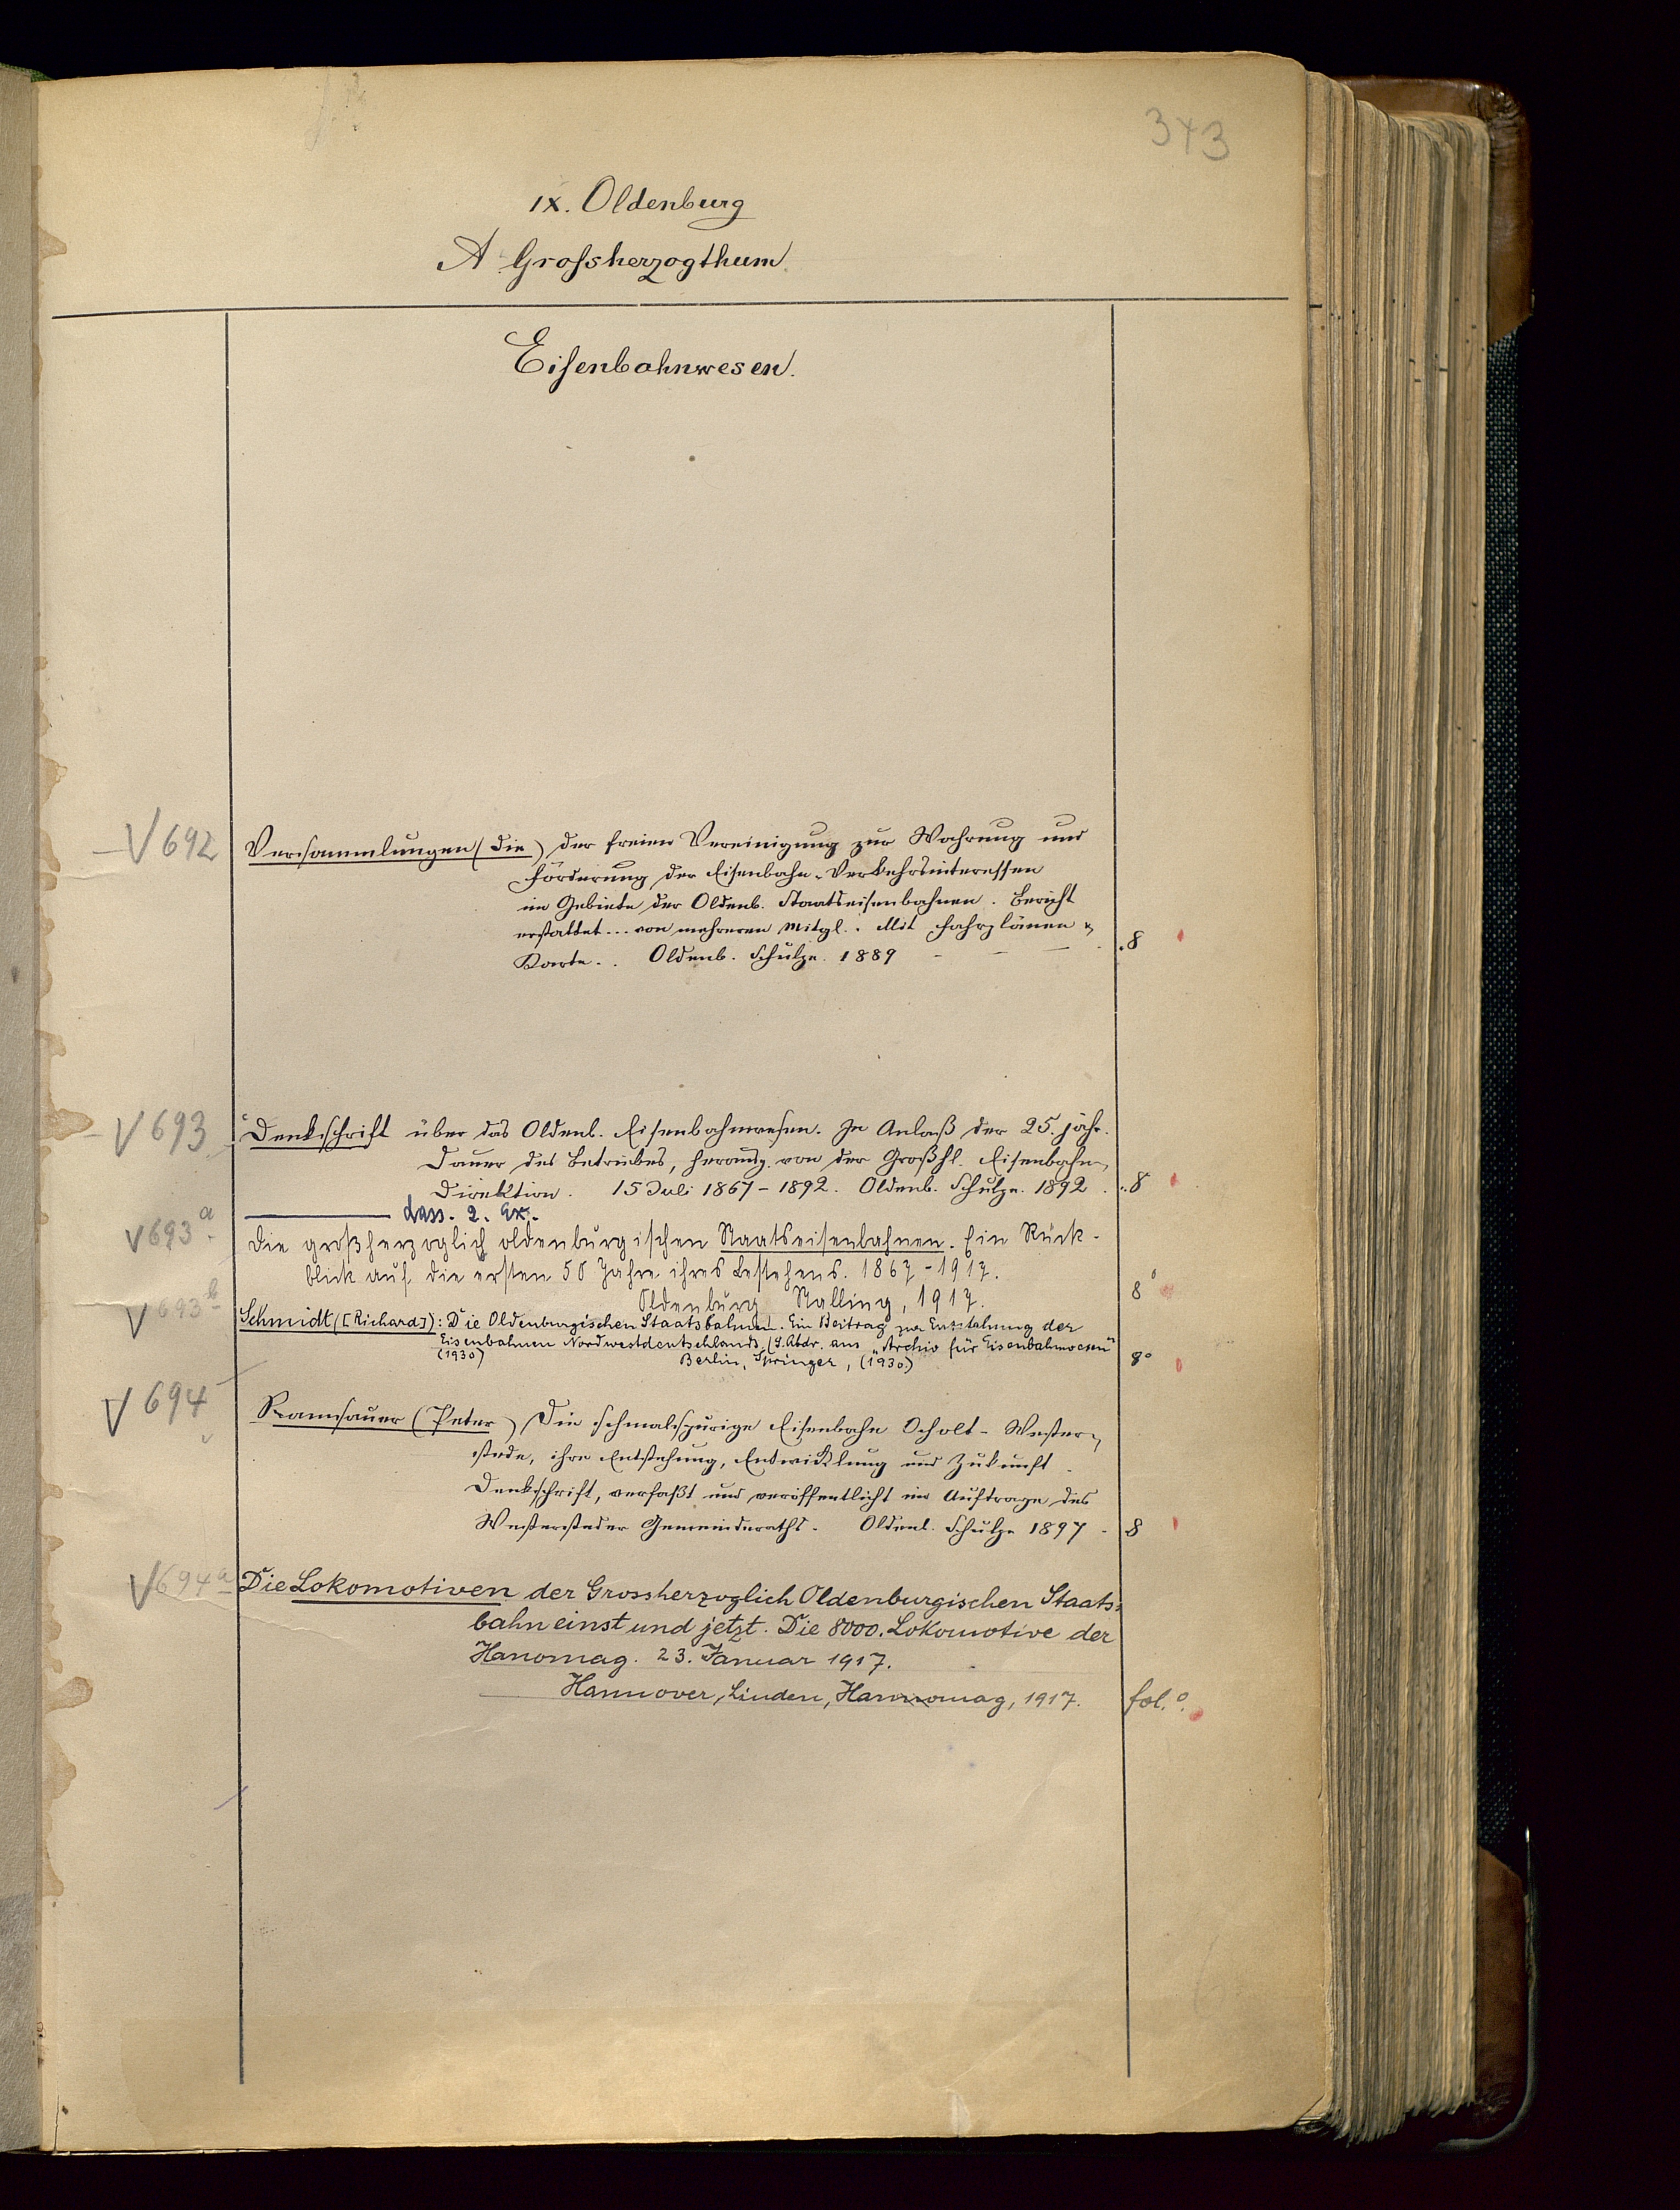 343
IX. Oldenburg
A Grossherzogthum.
Eisenbahnwesen.
V 692 Versammlungen (die) der freien Vereinigung zur Wahrung und
Förderung der Eisenbahn-Verkehrsinteressen
im Gebiete der Oldenb. Staatseisenbahnen. Bericht
erstattet... von mehreren Mitgl.. Mit Fahrplänen u.
Karte.. Oldenb. Schulze. 1889 - - - 8
V 693 Denkschrift über das Oldenb. Eisenbahnwesen. In Anlaß der 25. jähr.
Dauer des Betriebes, herausg. von der Großhl. Eisenbahn-
Direktion. 15 Juli 1867-1892. Oldenb. Schulze. 1892. 8
dass. 2. Ex.
V 693a. Die großherzoglich oldenburgischen Staatseisenbahnen. Ein Rück-
blick auf die ersten 50 Jahre ihres Bestehens. 1867-1917.
Oldenburg Stalling, 1917. 8°
V 693b Schmidt, ([Richard]): Die Oldenburgischen Staatsbahnen. Ein Beitrag zur Entstehung der
Eisenbahnen Nordwestdeutschlands. (S. Abdr. aus „Archiv für Eisenbahnwesen"
(1930) Berlin, Springer, (1930.) 8°
V 694 Ramsauer (Peter) Die schmalspurige Eisenbahn Ocholt-Wester-
stede, ihre Entstehung, Entwicklung und Zukunft.
Denkschrift, verfaßt und veröffentlicht im Auftrage des
Westersteder Gemeinderaths. Oldenb. Schulze 1897 - 8
V 694a Die Lokomotiven der Grossherzoglich Oldenburgischen Staats-
bahn einst und jetzt. Die 8000. Lokomotive der
Hanomag. 23. Januar 1917.
Hannover, Linden, Hannomag, 1917. fol.°.